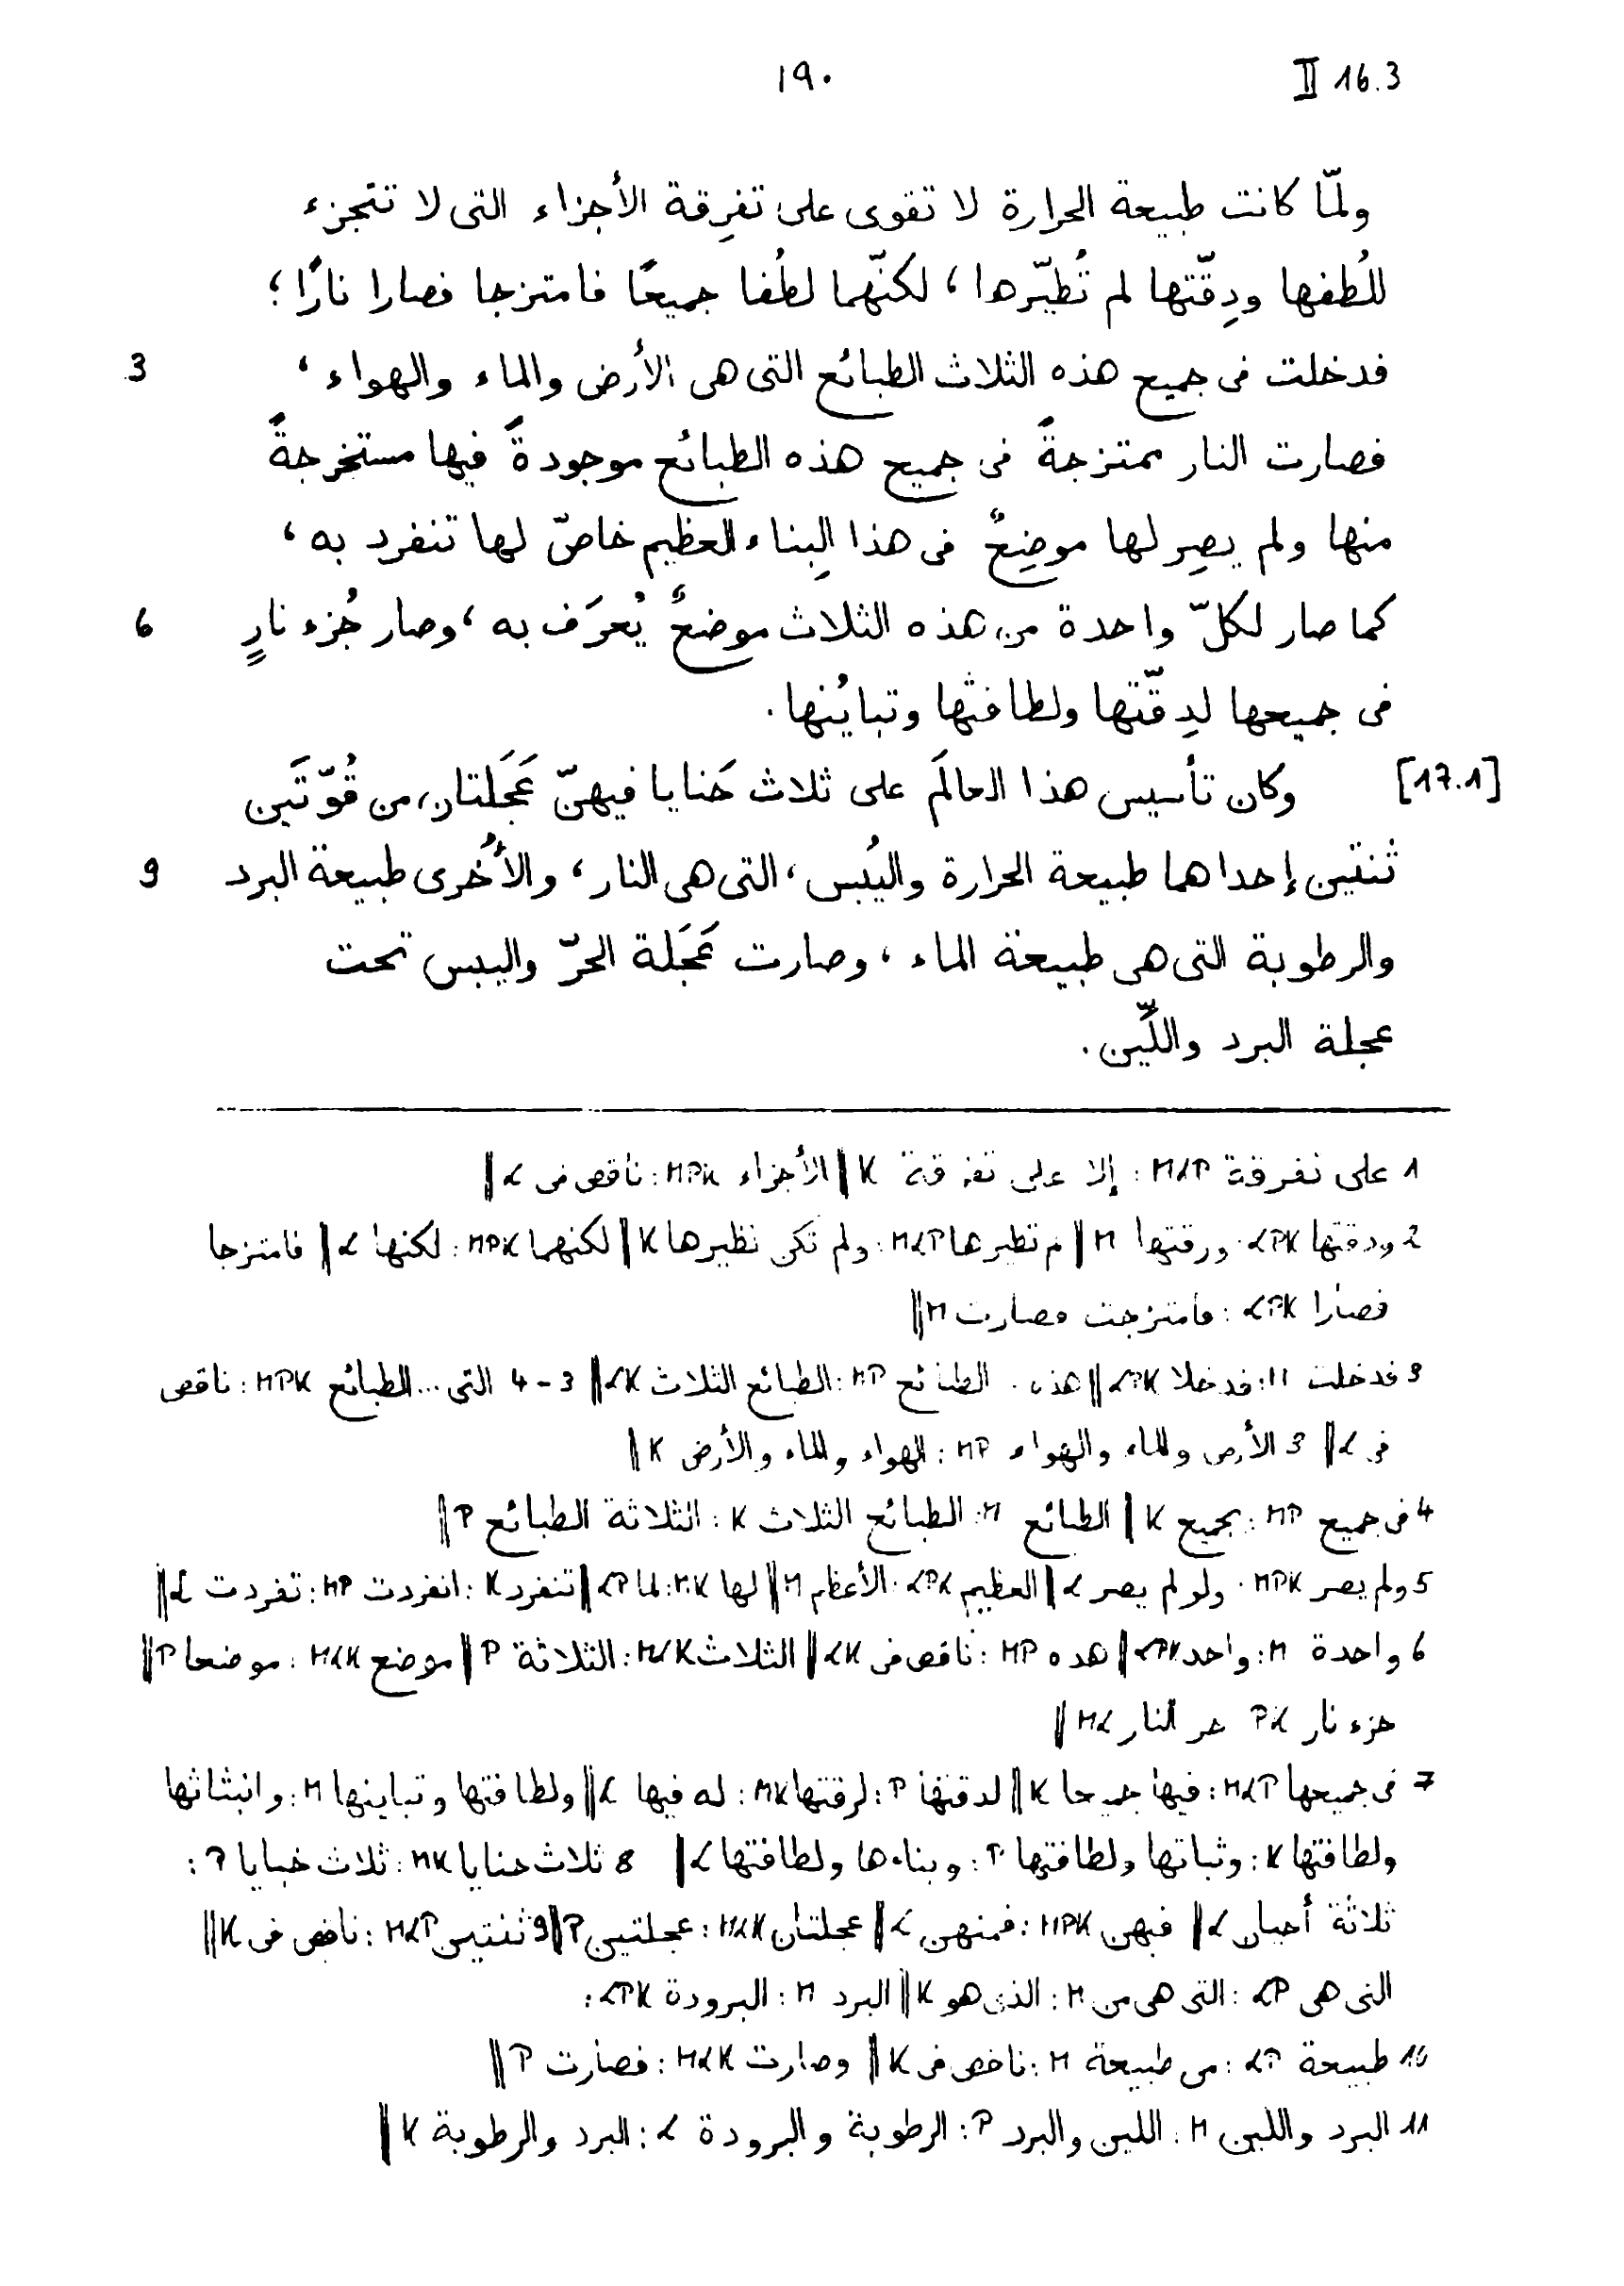 ١٩٠ II 16.3
ولمّا كانت طبيعة الحرارة لا تقوى على تفرِقة الأجزاء التى لا تتجزء
للُطفها ودِقّتها لم تُطيّرها ، لكنّهما لطُفا جميعًا فامتزجا فصارا نارًا ؛
فدخلت فى جميع هذه الثلاث الطبائع التى هى الأرض والماء والهواء ، 3
فصارت النار ممتزجةً فى جميع هذه الطبائع موجودةً فيها مستخرجةً
منها ولم يصِر لها موضِعٌ فى هذا البِناء العظيم خاصّ لها تنفرد به ،
كما صار لكلّ واحدة من هذه الثلاث موضعٌ يُعرَف به ، وصار جُزء نارٍ 6
فى جميعها لدِقّتها ولطافتها وتبايُنها .
[17.1] وكان تأسيس هذا العالَم على ثلاث حَنايا فيهنّ عَجَلتان من قُوّتَين
ثنتين إحداهما طبيعة الحرارة واليُبس ، التى هى النار ، والأُخرى طبيعة البرد 9
والرطوبة التى هى طبيعة الماء ، وصارت عَجَلة الحرّ واليبس تحت
عجلة البرد واللِّين .
1 على تفرقة MLP : إلا على تفرقة K || الأجزاء MPK : ناقص فى L ||
2 ودقتها LPK : ورقتها M || لم تطيرها MLP : ولم تكن نظيرها K || لكنهما MPK : لكنها L || فامتزجا
فصارا LPK : فامتزجت فصارت M ||
3 فدخلت M : فدخلا LPK || هذه . الطبائع MP : الطبائع الثلاث LK || 3-4 التى ... الطبائع MPK : ناقص
فى L || 3 الأرض والماء والهواء MP : الهواء والماء والأرض K ||
4 فى جميع MP : بجميع K || الطبائع M : الطبائع الثلاث K : الثلاثة الطبائع P ||
5 ولم يصر MPK : ولو لم يصر L || العظيم LPK : الأعظم M || لها MK : لما LP || تنفرد K : انفردت MP : تفردت L ||
6 واحدة M : واحد LPK || هذه MP : ناقص فى LK || الثلاث MLK : الثلاثة P || موضع MLK : موضعا P ||
جزء نار PK حر النار ML ||
7 فى جميعها MLP : فيها جميعا K || لدقتها P : لرقتها MK : له فيها L || ولطافتها وتباينها M : وانبثاثها
ولطافتها K : وثباتها ولطافتها P : وبناءها ولطافتها L || 8 ثلاث حنايا MK : ثلاث خبايا P :
ثلاثة أحيان L || فيهن MPK : فمنهن L || عجلتان MLK : عجلتين P || 9 ثنتين MLP : ناقص فى K ||
التى هى LP : التى هى من M : الذى هو K || البرد M : البرودة LPK :
10 طبيعة LP : من طبيعة M : ناقص فى K || وصارت MLK : فصارت P ||
11 البرد واللين M : اللين والبرد P : الرطوبة والبرودة L : البرد والرطوبة K ||